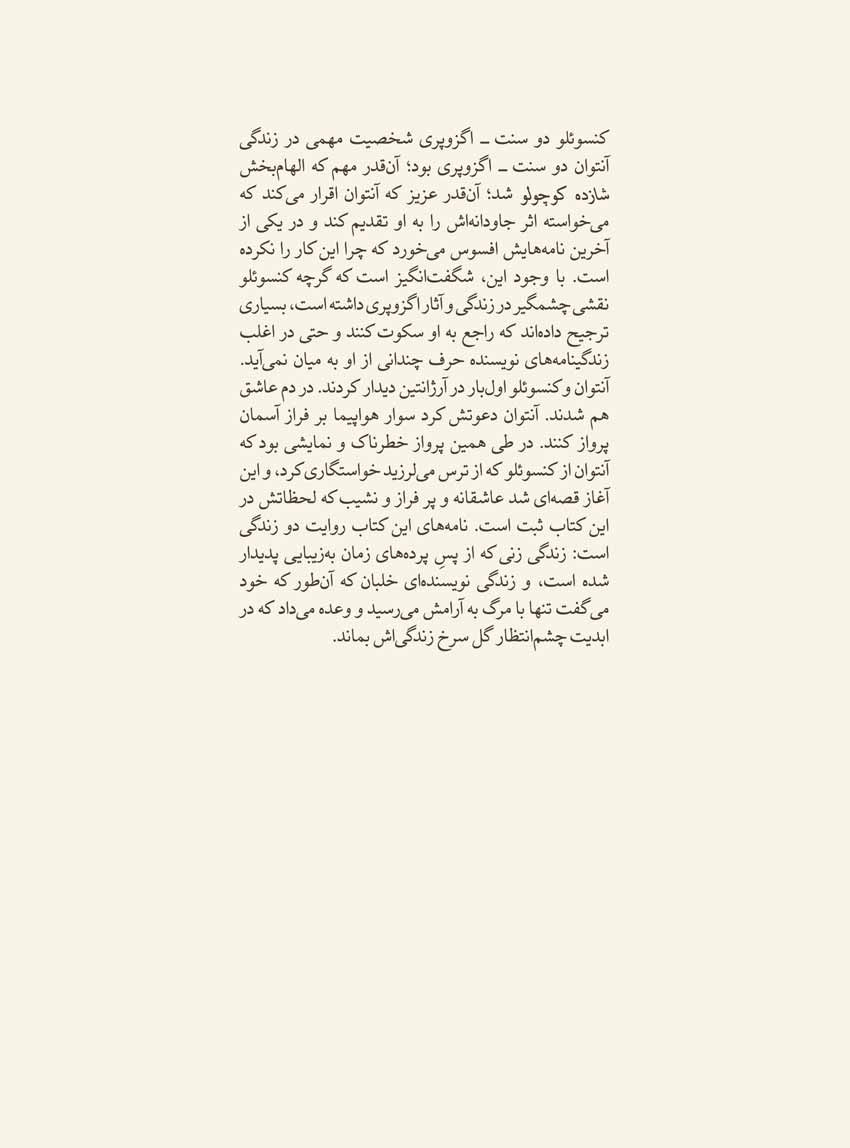 کنسوئلو دو سنت ــ اگزوپری شخصیت مهمی در زندگی
آنتوان دو سنت ــ اگزوپری بود؛ آن‌قدر مهم که الهام‌بخش
شازده کوچولو شد؛ آن‌قدر عزیز که آنتوان اقرار می‌کند که
می‌خواسته اثر جاودانه‌اش را به او تقدیم کند و در یکی از
آخرین نامه‌هایش افسوس می‌خورد که چرا این کار را نکرده
است. با وجود این، شگفت‌انگیز است که گرچه کنسوئلو
نقشی چشمگیر در زندگی و آثار اگزوپری داشته است، بسیاری
ترجیح داده‌اند که راجع به او سکوت کنند و حتی در اغلب
زندگینامه‌های نویسنده حرف چندانی از او به میان نمی‌آید.
آنتوان و کنسوئلو اول‌بار در آرژانتین دیدار کردند. در دم عاشق
هم شدند. آنتوان دعوتش کرد سوار هواپیما بر فراز آسمان
پرواز کنند. در طی همین پرواز خطرناک و نمایشی بود که
آنتوان از کنسوئلو که از ترس می‌لرزید خواستگاری کرد، و این
آغاز قصه‌ای شد عاشقانه و پر فراز و نشیب که لحظاتش در
این کتاب ثبت است. نامه‌های این کتاب روایت دو زندگی
است: زندگی زنی که از پسِ پرده‌های زمان به‌زیبایی پدیدار
شده است، و زندگی نویسنده‌ای خلبان که آن‌طور که خود
می‌گفت تنها با مرگ به آرامش می‌رسید و وعده می‌داد که در
ابدیت چشم‌انتظار گل سرخ زندگی‌اش بماند.